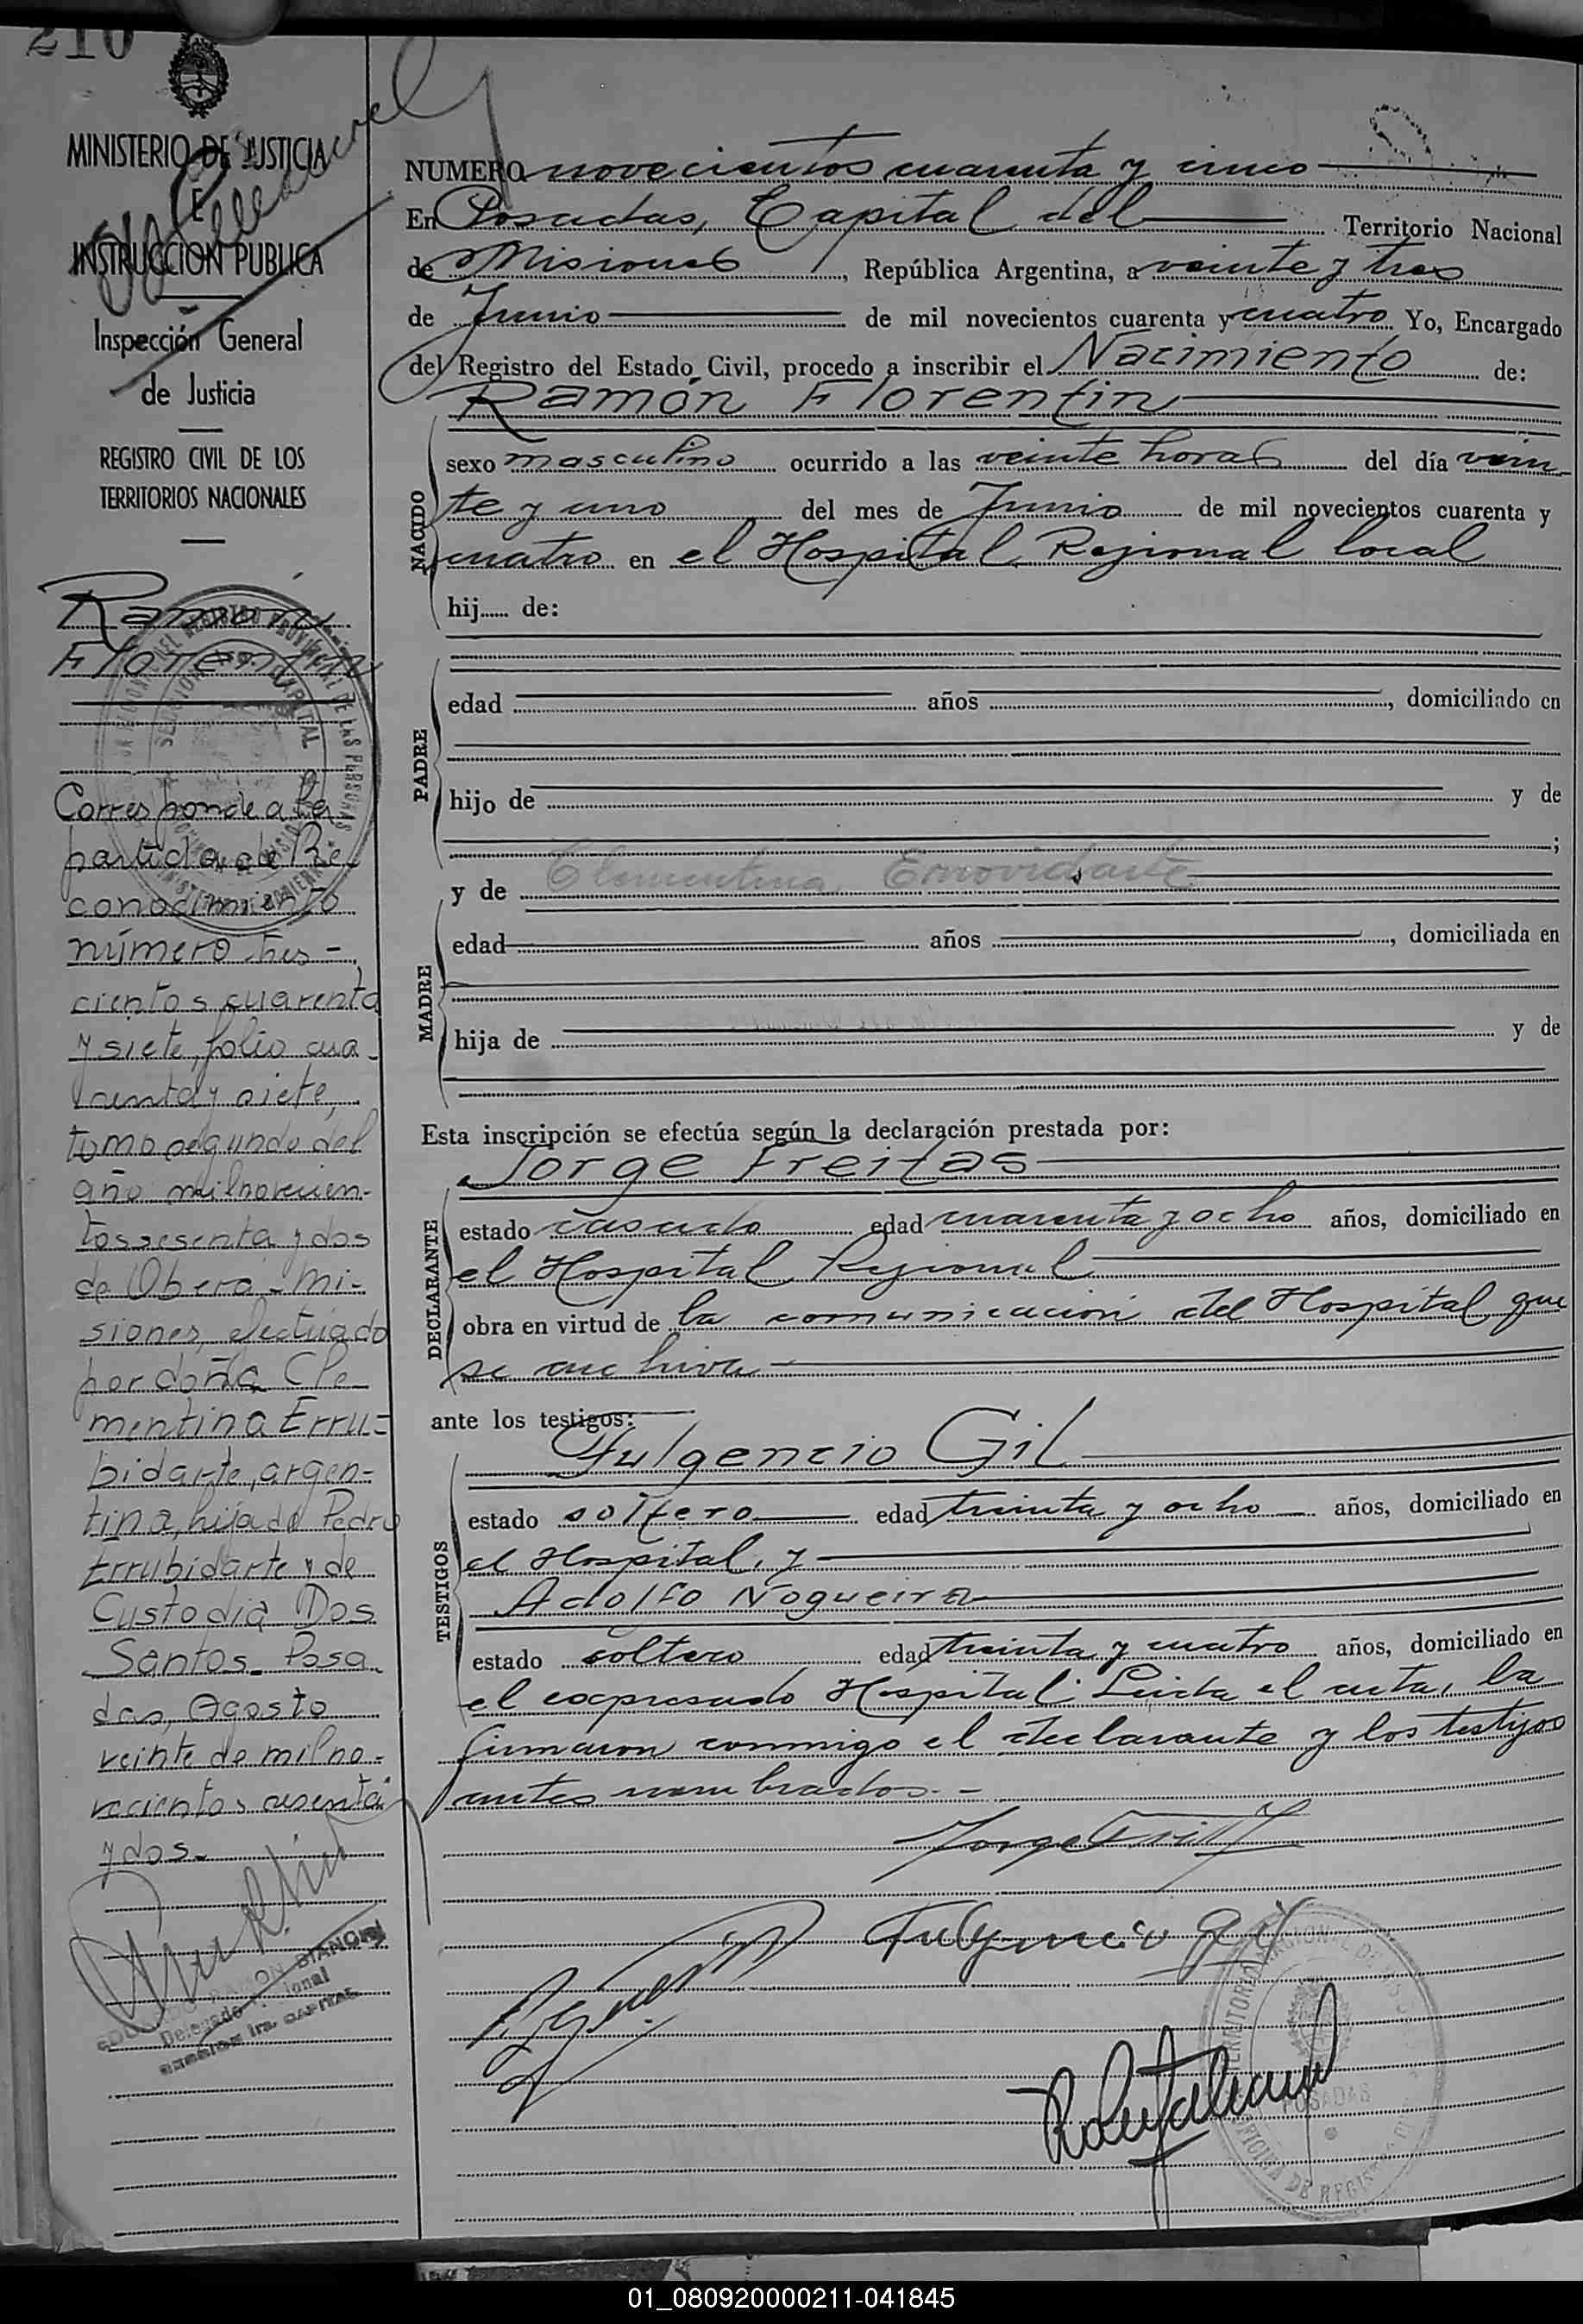 210
MINISTERIO DE JUSTICIA
E
INSTRUCCION PUBLICA
Inspección General
de Justicia
REGISTRO CIVIL DE LOS
TERRITORIOS NACIONALES
Ramón
Florentin
Corresponde a la
partida de Re-
conocimiento
número tres-
cientos cuarenta
y siete, folio cua-
renta y siete,
tomo segundo del
año mil novecien-
tos sesenta y dos
de Oberá - Mi-
siones, efectuado
por doña Cle
mentina Erru-
bidarte, argen-
tina, hija de Pedro
Errubidarte y de
Custodia Dos
Santos. Posa
das, Agosto
veinte de mil no-
vecientos sesenta
y dos.
RAMON BIANCHI
Delegado
SECCION 1ra. CAPITAL
NUMERO novecientos cuarenta y cinco
En Posadas, Capital del Territorio Nacional
de Misiones, República Argentina, a veinte y tres
de Junio de mil novecientos cuarenta y cuatro Yo, Encargado
del Registro del Estado Civil, procedo a inscribir el Nacimiento de:
Ramón Florentin
NACIDO
sexo masculino ocurrido a las veinte horas del día vein
te y uno del mes de Junio de mil novecientos cuarenta y
cuatro en el Hospital Regional local
hij...... de:
PADRE
edad años , domiciliado en
hijo de y de
;
y de Clementina
MADRE
edad años , domiciliada en
hija de y de
Esta inscripción se efectúa según la declaración prestada por:
Jorge Freitas
DECLARANTE
estado casado edad cuarenta y ocho años, domiciliado en
el Hospital Regional
obra en virtud de la comunicación del Hospital que
se archiva
ante los testigos:
Fulgencio Gil
TESTIGOS
estado soltero edad treinta y ocho años, domiciliado en
el Hospital, y
Adolfo Nogueira
estado soltero edad treinta y cuatro años, domiciliado en
el expresado Hospital. Leida el acta, la
firmaron conmigo el declarante y los testigos
antes nombrados.-
Fulgencio Gil
POSADAS
01_080920000211-041845